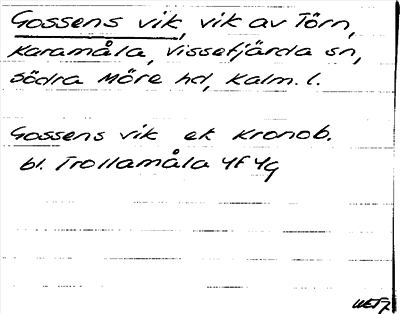 Gossens vik, vik av Törn,
Karamåla, Vissefjärda sn,
Södra Möre hd, Kalm. l.
Gossens vik ek Kronob.
bl. Trollamåla 4f 4g